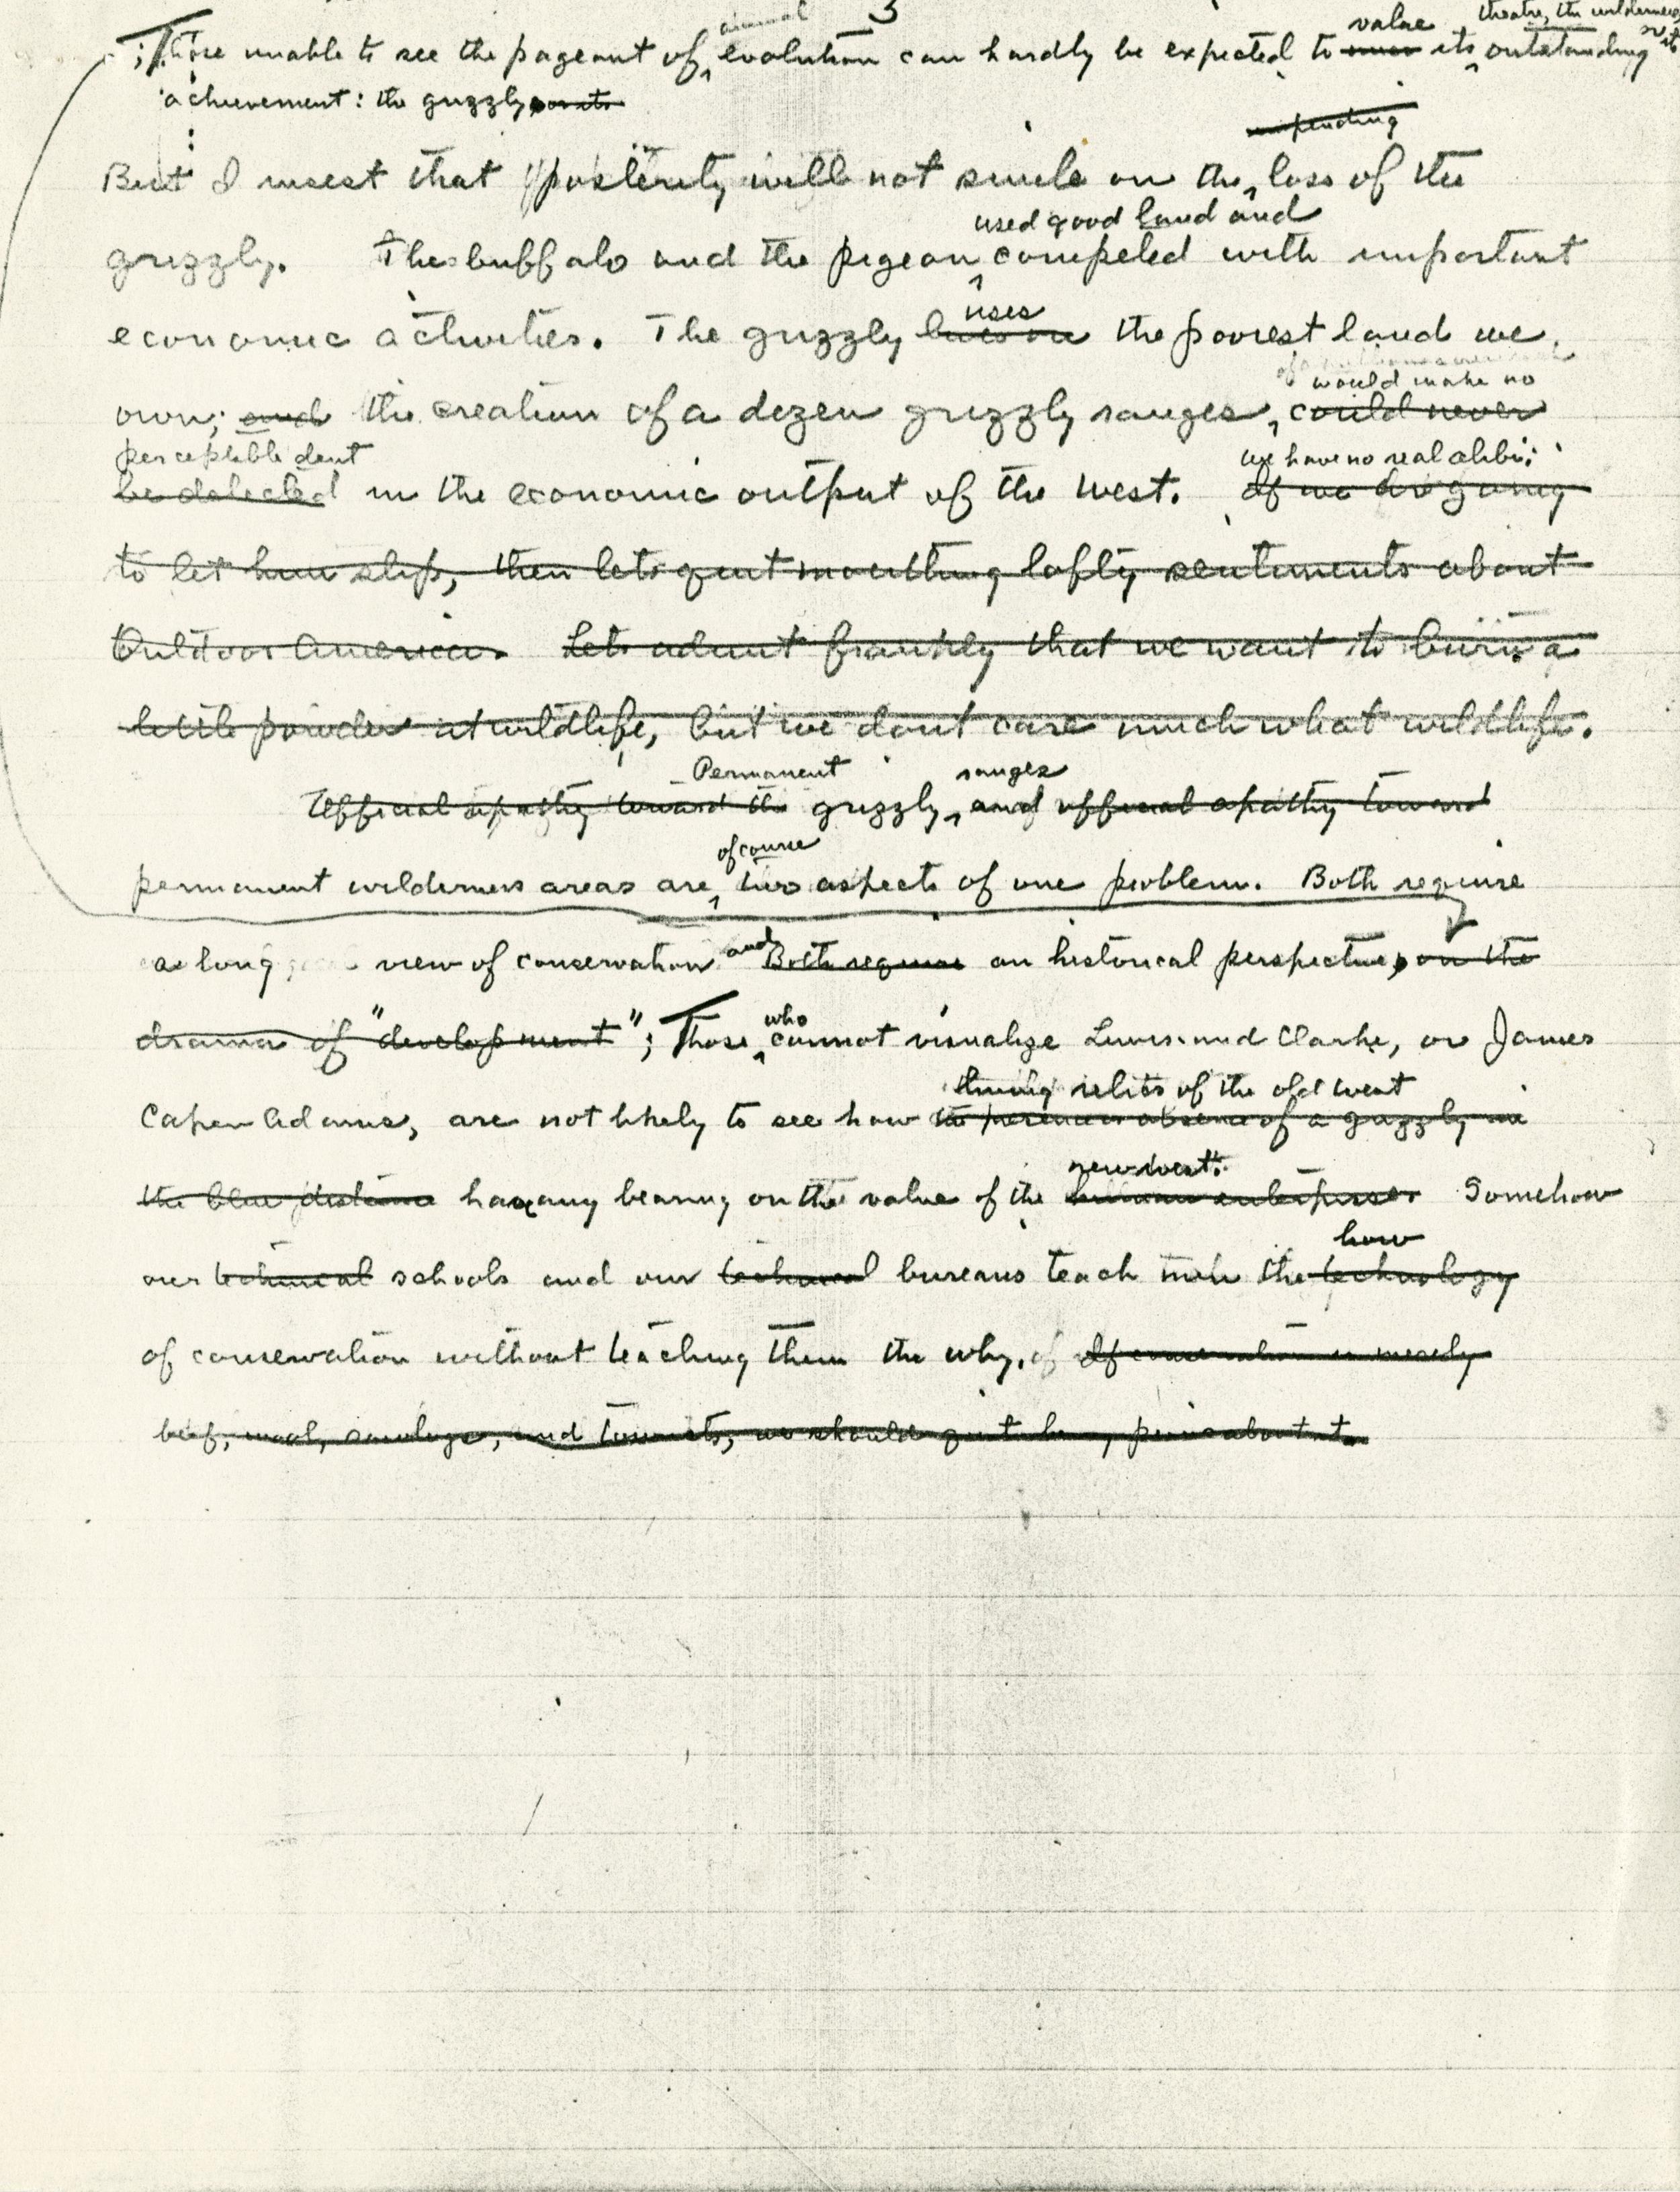 3
animal value theatre, the wilderness,
; Those unable to see the pageant of evolution can hardly be expected to its outstanding
achievement: the grizzly
impending
But I insist that posterity will not smile on the loss of the
used good land and
grizzly. The buffalo and the pigeon competed with important
uses
economic activities. The grizzly lives on the poorest land we
would make no
own; and the creation of a dozen grizzly ranges, could never
perceptible dent we have no real alibi;
be detected in the economic output of the West. If we are going
to let him slip, then lets quit mouthing lofty sentiments about
Outdoor America. Lets admit frankly that we want to burn a
little powder at wildlife, but we dont care much what wildlife.
Permanent ranges
Official apathy toward the grizzly and official apathy toward
of course
permanent wilderness areas are two aspects of one problem. Both require
and
a long view of conservation Both require an historical perspective, on the
who
drama of "development"; Those cannot visualize Lewis and Clarke, or James
living relics of the old west
Capen Adams, are not likely to see how the absence of a grizzly in
new west.
the blue distance has any bearing on the value of the human enterprise. Somehow
how
our technical schools and our technical bureaus teach the technology
of conservation without teaching them the why. of If conservation is merely
beef, wool, and tourists, we should quit about it.